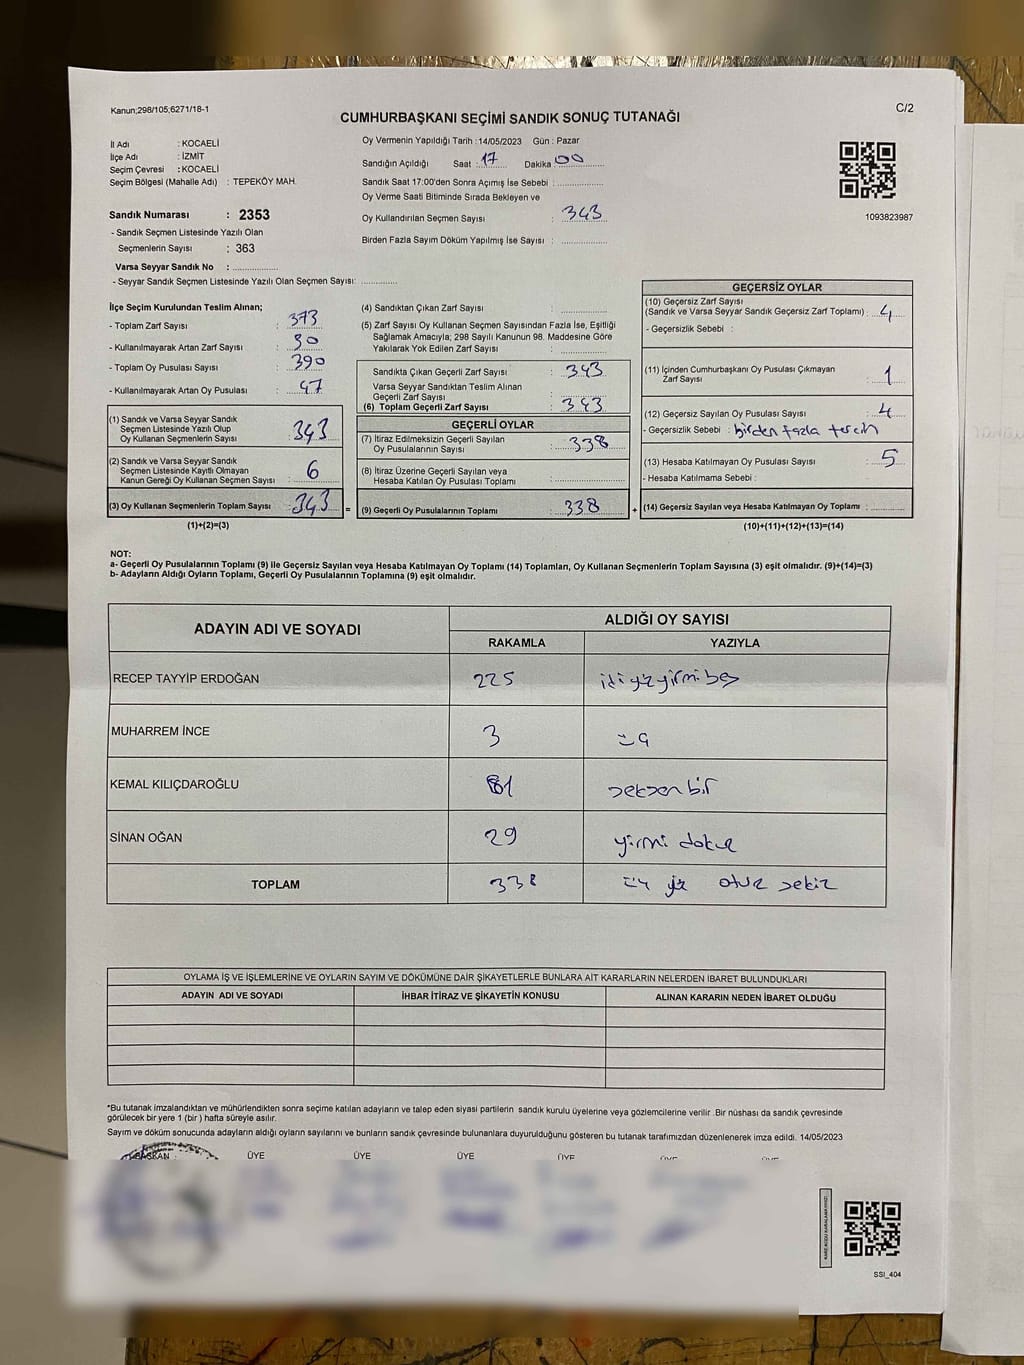 Kanun;298/105;6271/18-1
C/2
CUMHURBAŞKANI SEÇİMİ SANDIK SONUÇ TUTANAĞI
İl Adı : KOCAELİ
İlçe Adı : İZMİT
Seçim Çevresi : KOCAELİ
Seçim Bölgesi (Mahalle Adı) : TEPEKÖY MAH.
Sandık Numarası : 2353
- Sandık Seçmen Listesinde Yazılı Olan
Seçmenlerin Sayısı : 363
Varsa Seyyar Sandık No : ..................
- Seyyar Sandık Seçmen Listesinde Yazılı Olan Seçmen Sayısı: ..............
Oy Vermenin Yapıldığı Tarih :14/05/2023 Gün : Pazar
Sandığın Açıldığı Saat : 17 Dakika : 00
Sandık Saat 17:00'den Sonra Açımış İse Sebebi : ..................
Oy Verme Saati Bitiminde Sırada Bekleyen ve
Oy Kullandırılan Seçmen Sayısı : 343
Birden Fazla Sayım Döküm Yapılmış İse Sayısı : ..................
1093823987
İlçe Seçim Kurulundan Teslim Alınan;
- Toplam Zarf Sayısı : 373
- Kullanılmayarak Artan Zarf Sayısı : 30
- Toplam Oy Pusulası Sayısı : 390
- Kullanılmayarak Artan Oy Pusulası : 47
(1) Sandık ve Varsa Seyyar Sandık
Seçmen Listesinde Yazılı Olup
Oy Kullanan Seçmenlerin Sayısı : 343
(2) Sandık ve Varsa Seyyar Sandık
Seçmen Listesinde Kayıtlı Olmayan
Kanun Gereği Oy Kullanan Seçmen Sayısı : 6
(3) Oy Kullanan Seçmenlerin Toplam Sayısı : 343 =
(1)+(2)=(3)
(4) Sandıktan Çıkan Zarf Sayısı : ..................
(5) Zarf Sayısı Oy Kullanan Seçmen Sayısından Fazla İse, Eşitliği
Sağlamak Amacıyla; 298 Sayılı Kanunun 98. Maddesine Göre
Yakılarak Yok Edilen Zarf Sayısı : ..................
Sandıkta Çıkan Geçerli Zarf Sayısı : 343
Varsa Seyyar Sandıktan Teslim Alınan
Geçerli Zarf Sayısı : ..................
(6) Toplam Geçerli Zarf Sayısı : 343
GEÇERLİ OYLAR
(7) İtiraz Edilmeksizin Geçerli Sayılan
Oy Pusulalarının Sayısı : 338
(8) İtiraz Üzerine Geçerli Sayılan veya
Hesaba Katılan Oy Pusulası Toplamı : ..................
(9) Geçerli Oy Pusulalarının Toplamı : 338 +
GEÇERSİZ OYLAR
(10) Geçersiz Zarf Sayısı
(Sandık ve Varsa Seyyar Sandık Geçersiz Zarf Toplamı) : 4
- Geçersizlik Sebebi :
(11) İçinden Cumhurbaşkanı Oy Pusulası Çıkmayan
Zarf Sayısı : 1
(12) Geçersiz Sayılan Oy Pusulası Sayısı : 4
- Geçersizlik Sebebi : birden fazla tercih
(13) Hesaba Katılmayan Oy Pusulası Sayısı : 5
- Hesaba Katılmama Sebebi :
(14) Geçersiz Sayılan veya Hesaba Katılmayan Oy Toplamı : ..........
(10)+(11)+(12)+(13)=(14)
NOT:
a- Geçerli Oy Pusulalarının Toplamı (9) ile Geçersiz Sayılan veya Hesaba Katılmayan Oy Toplamı (14) Toplamları, Oy Kullanan Seçmenlerin Toplam Sayısına (3) eşit olmalıdır. (9)+(14)=(3)
b- Adayların Aldığı Oyların Toplamı, Geçerli Oy Pusulalarının Toplamına (9) eşit olmalıdır.
ADAYIN ADI VE SOYADI ALDIĞI OY SAYISI
RAKAMLA YAZIYLA
RECEP TAYYİP ERDOĞAN 225 iki yüz yirmi beş
MUHARREM İNCE 3 üç
KEMAL KILIÇDAROĞLU 81 seksen bir
SİNAN OĞAN 29 yirmi dokuz
TOPLAM 338 üç yüz otuz sekiz
OYLAMA İŞ VE İŞLEMLERİNE VE OYLARIN SAYIM VE DÖKÜMÜNE DAİR ŞİKAYETLERLE BUNLARA AİT KARARLARIN NELERDEN İBARET BULUNDUKLARI
ADAYIN ADI VE SOYADI İHBAR İTİRAZ VE ŞİKAYETİN KONUSU ALINAN KARARIN NEDEN İBARET OLDUĞU
*Bu tutanak imzalandıktan ve mühürlendikten sonra seçime katılan adayların ve talep eden siyasi partilerin sandık kurulu üyelerine veya gözlemcilerine verilir .Bir nüshası da sandık çevresinde
görülecek bir yere 1 (bir ) hafta süreyle asılır.
Sayım ve döküm sonucunda adayların aldığı oyların sayılarını ve bunların sandık çevresinde bulunanlara duyurulduğunu gösteren bu tutanak tarafımızdan düzenlenerek imza edildi. 14/05/2023
BAŞKAN ÜYE ÜYE ÜYE ÜYE ÜYE ÜYE
SSI_404